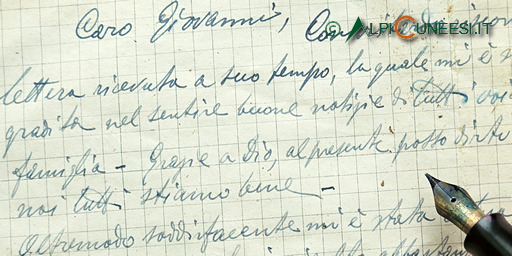 © ALPICUNEESI.IT
Caro Giovanni,
lettera ricevuta a suo tempo, la quale mi è
gradita nel sentire buone notizie di tutti voi
famiglia - Grazie a Dio, al presente posso dirte
noi tutti stiamo bene -
Oltremodo soddisfacente mi è stata